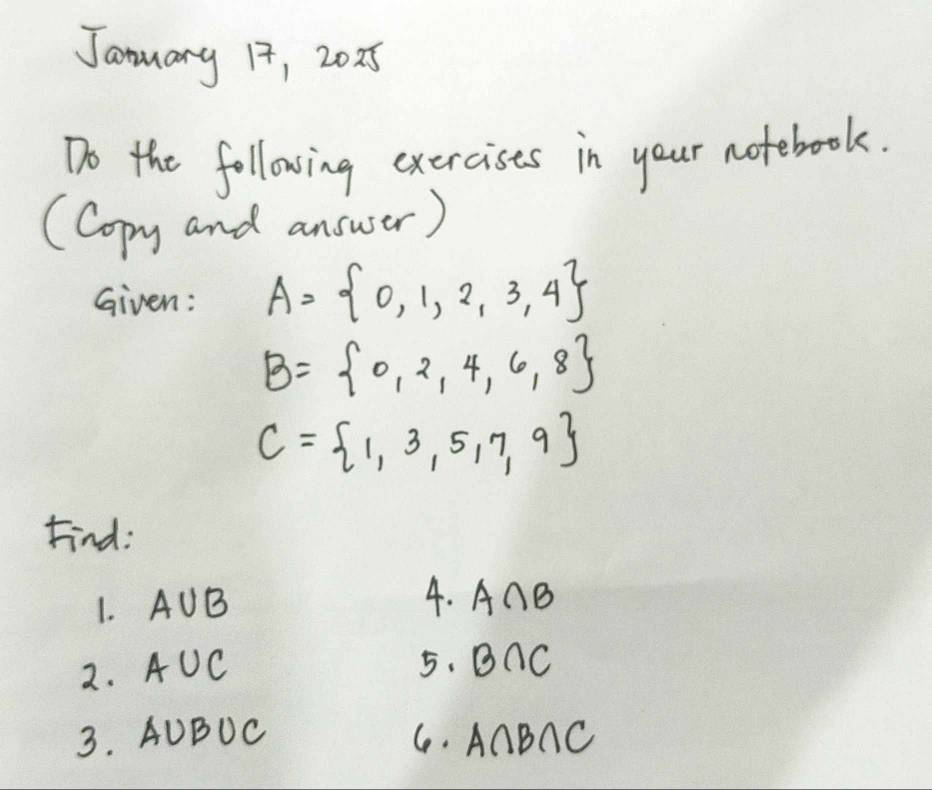 January 17, 2025
Do the following exercises in your notebook.
(Copy and answer)
Given: A = {0, 1, 2, 3, 4}
B = {0, 2, 4, 6, 8}
C = {1, 3, 5, 7, 9}
Find:
1. A∪B 4. A∩B
2. A∪C 5. B∩C
3. A∪B∪C 6. A∩B∩C